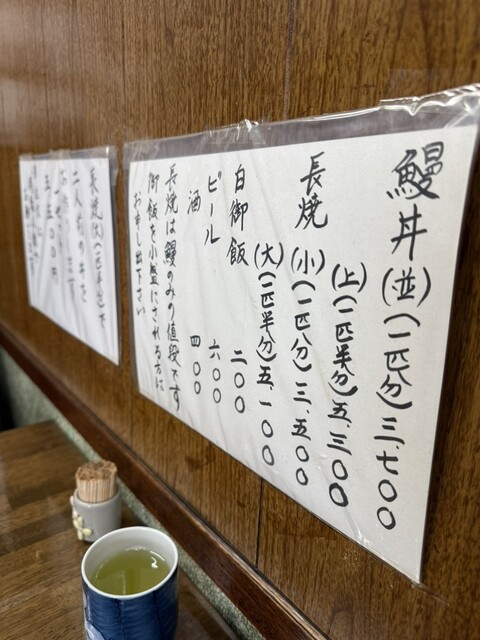 鰻丼(並)(一匹分)三、七〇〇
(上)(一匹半分)五、三〇〇
長焼(小)(一匹分)三、五〇〇
(大)(一匹半分)五、一〇〇
白御飯 二〇〇
ビール 六〇〇
酒 四〇〇
長焼は鰻のみの値段です
御飯を小盛にされる方は
お申し出下さい
長焼(大)(一匹半)で
二人前の丼を
五、五〇〇円